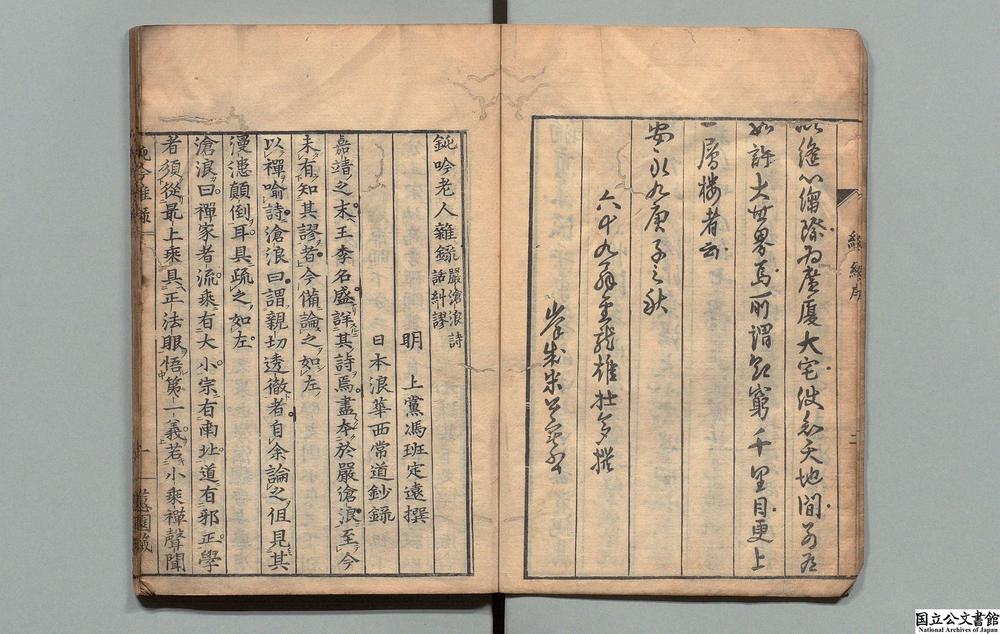 以維心繪際為廣廈大宅使知天地間
如許大世界焉所謂欲窮千里目更上
一層樓者云
安永九庚子之秋
六十九翁
鈍吟老人雜錄嚴滄浪詩話糾謬
明　上黨馮班定遠撰
日本浪華西常道鈔錄
嘉靖之末王李名盛詳其詩焉盡本於嚴滄浪至今
未有知其謬者今備論之如左
以禪喻詩滄浪曰謂親切透徹者自余論之但見其
漫漶顛倒耳具疏之如左
滄浪曰禪家者流乘有大小宗有南北道有邪正學
者須從最上乘具正法眼悟第一義若小乘禪聲聞
鈍吟雜錄
國立公文書館
National Archives of Japan